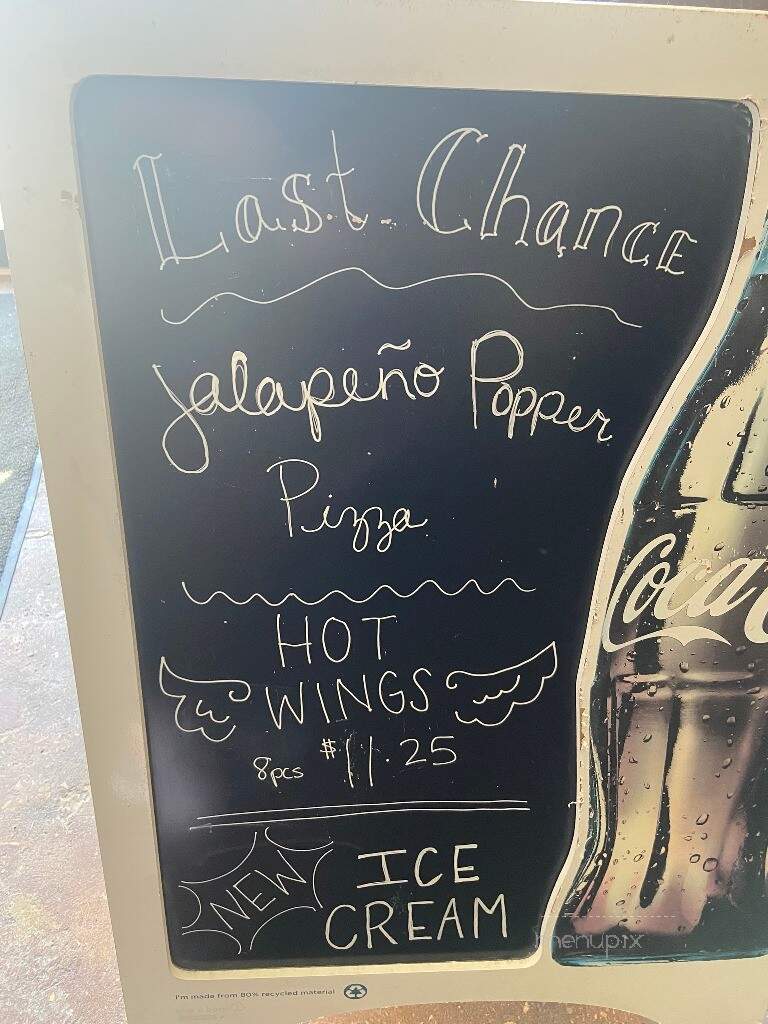 Last Chance
Jalapeño Popper
Pizza
HOT
WINGS
8pcs $11.25
NEW ICE
CREAM
Coca
menupix
I'm made from 80% recycled material